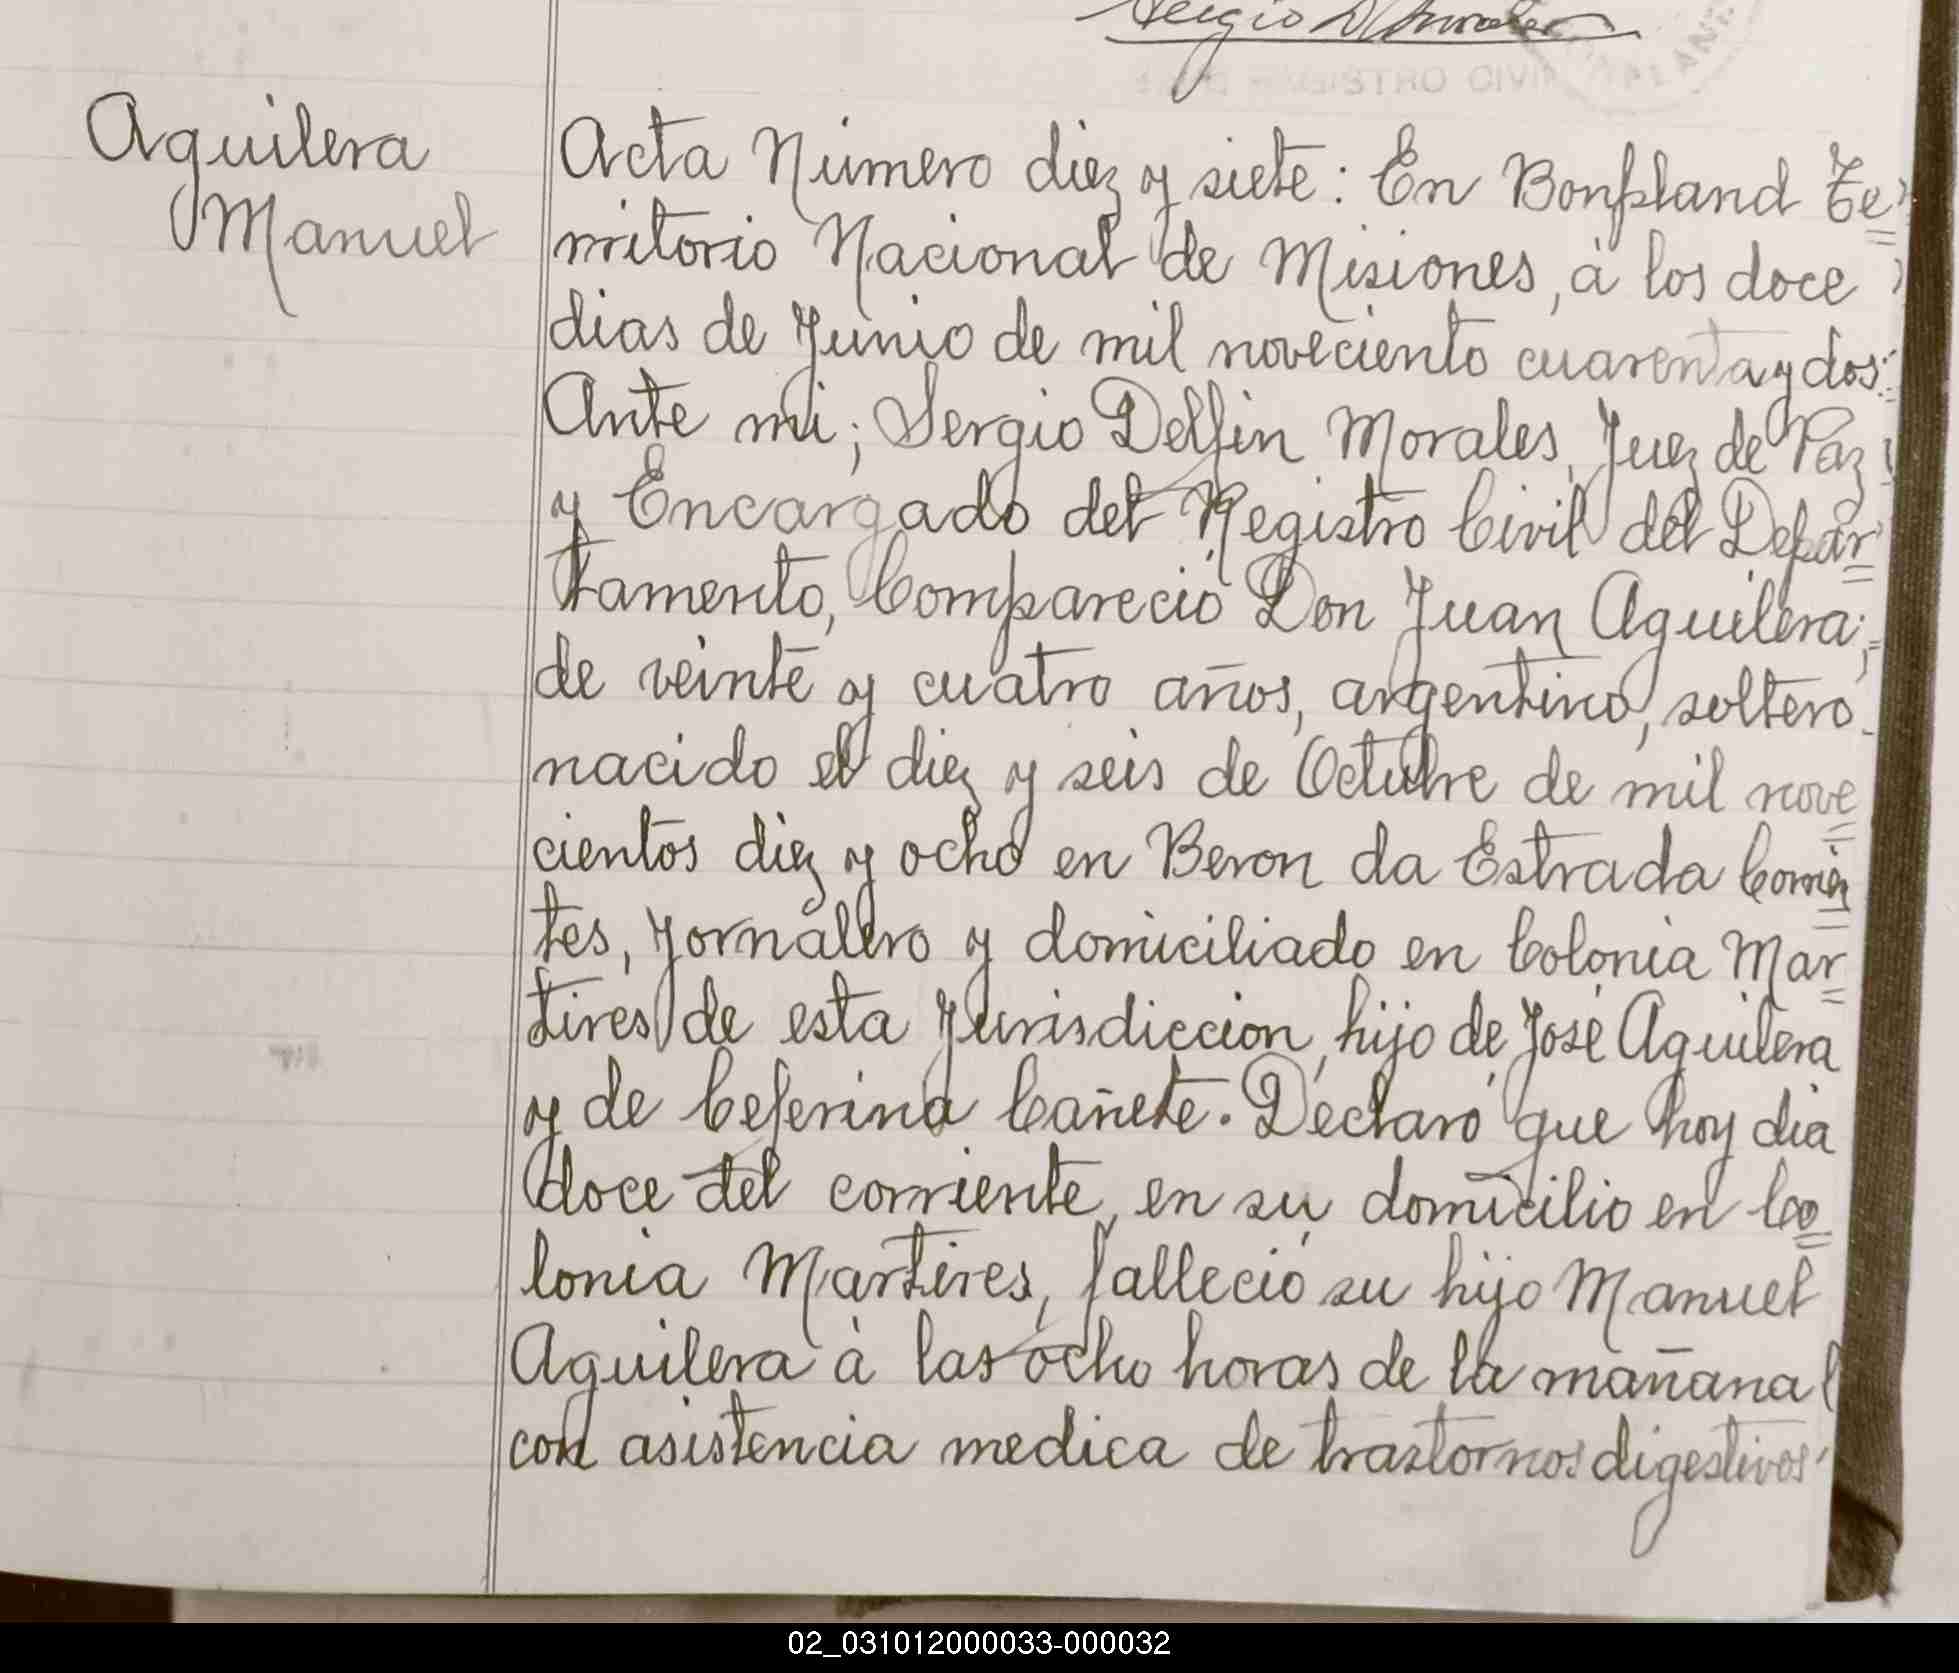 Sergio D Morales
REGISTRO CIVIL
Aguilera
Manuel
Acta Número diez y siete: En Bonpland Te=
rritorio Nacional de Misiones, à los doce
dias de Junio de mil noveciento cuarenta y dos:
Ante mi; Sergio Delfin Morales, Juez de Paz
y Encargado del Registro Civil del Depar=
tamento, Compareció Don Juan Aguilera;
de veinte y cuatro años, argentino, soltero
nacido el diez y seis de Octubre de mil nove=
cientos diez y ocho en Beron da Estrada Corrien=
tes, Jornalero y domiciliado en Colonia Mar=
tires de esta Jurisdiccion, hijo de José Aguilera
y de Ceferina Cañete. Declaró que hoy dia
doce del corriente, en su domicilio en Co=
lonia Martires, falleció su hijo Manuel
Aguilera à las ocho horas de la mañana
con asistencia medica de trastornos digestivos
02_031012000033-000032